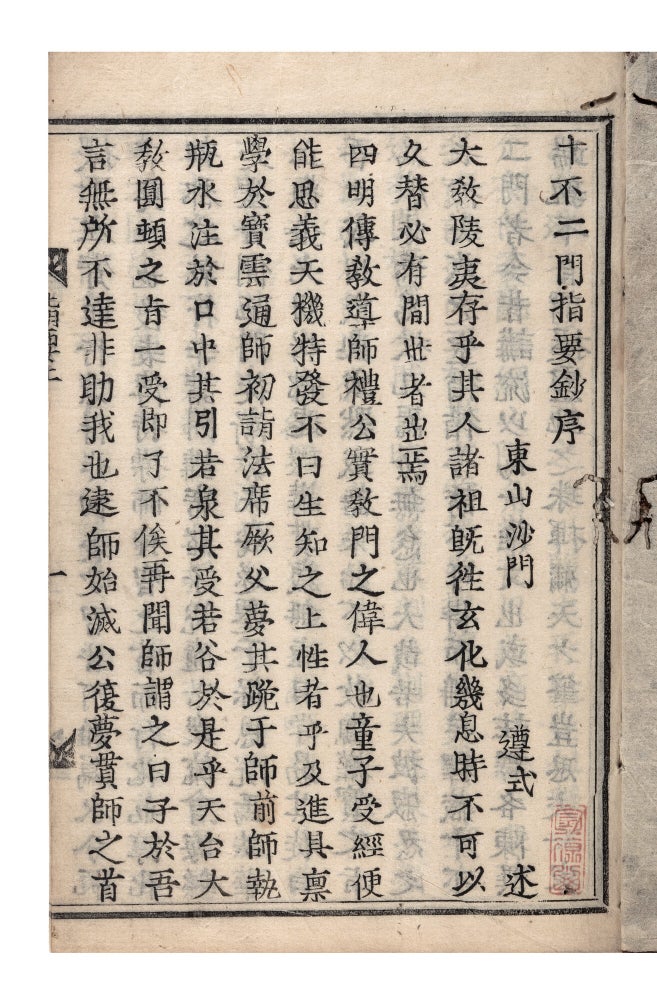 十不二門指要鈔序
東山沙門 遵式 述
大敎陵夷存乎其人諸祖旣徃玄化幾息時不可以
久替必有間世者出焉
四明傳敎導師禮公實敎門之偉人也童子受經便
能思義天機特發不曰生知之上性者乎及進具禀
學於寶雲通師初詣法席厥父夢其跪于師前師執
瓶水注於口中其引若泉其受若谷於是乎天台大
敎圓頓之旨一受即了不俟再聞師謂之曰子於吾
言無所不達非助我也逮師始滅公復夢貫師之首
指要上
一